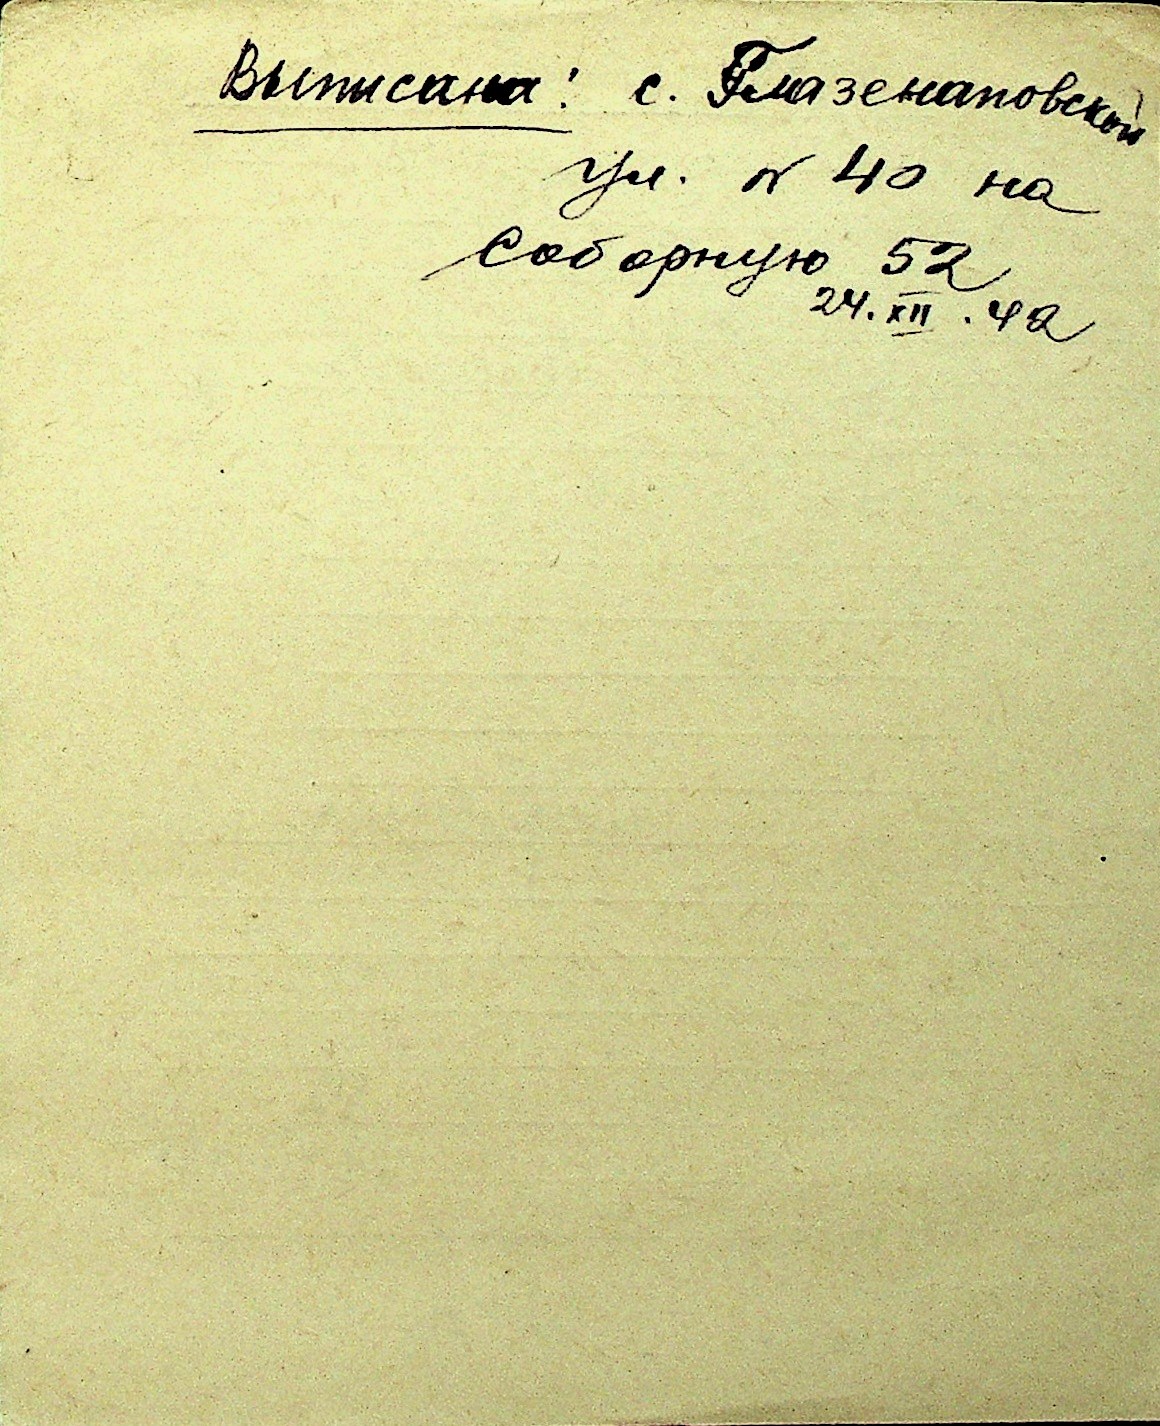 Выписана: с. Глазенаповской
ул. № 40 на
Соборную 52
24.XII.42